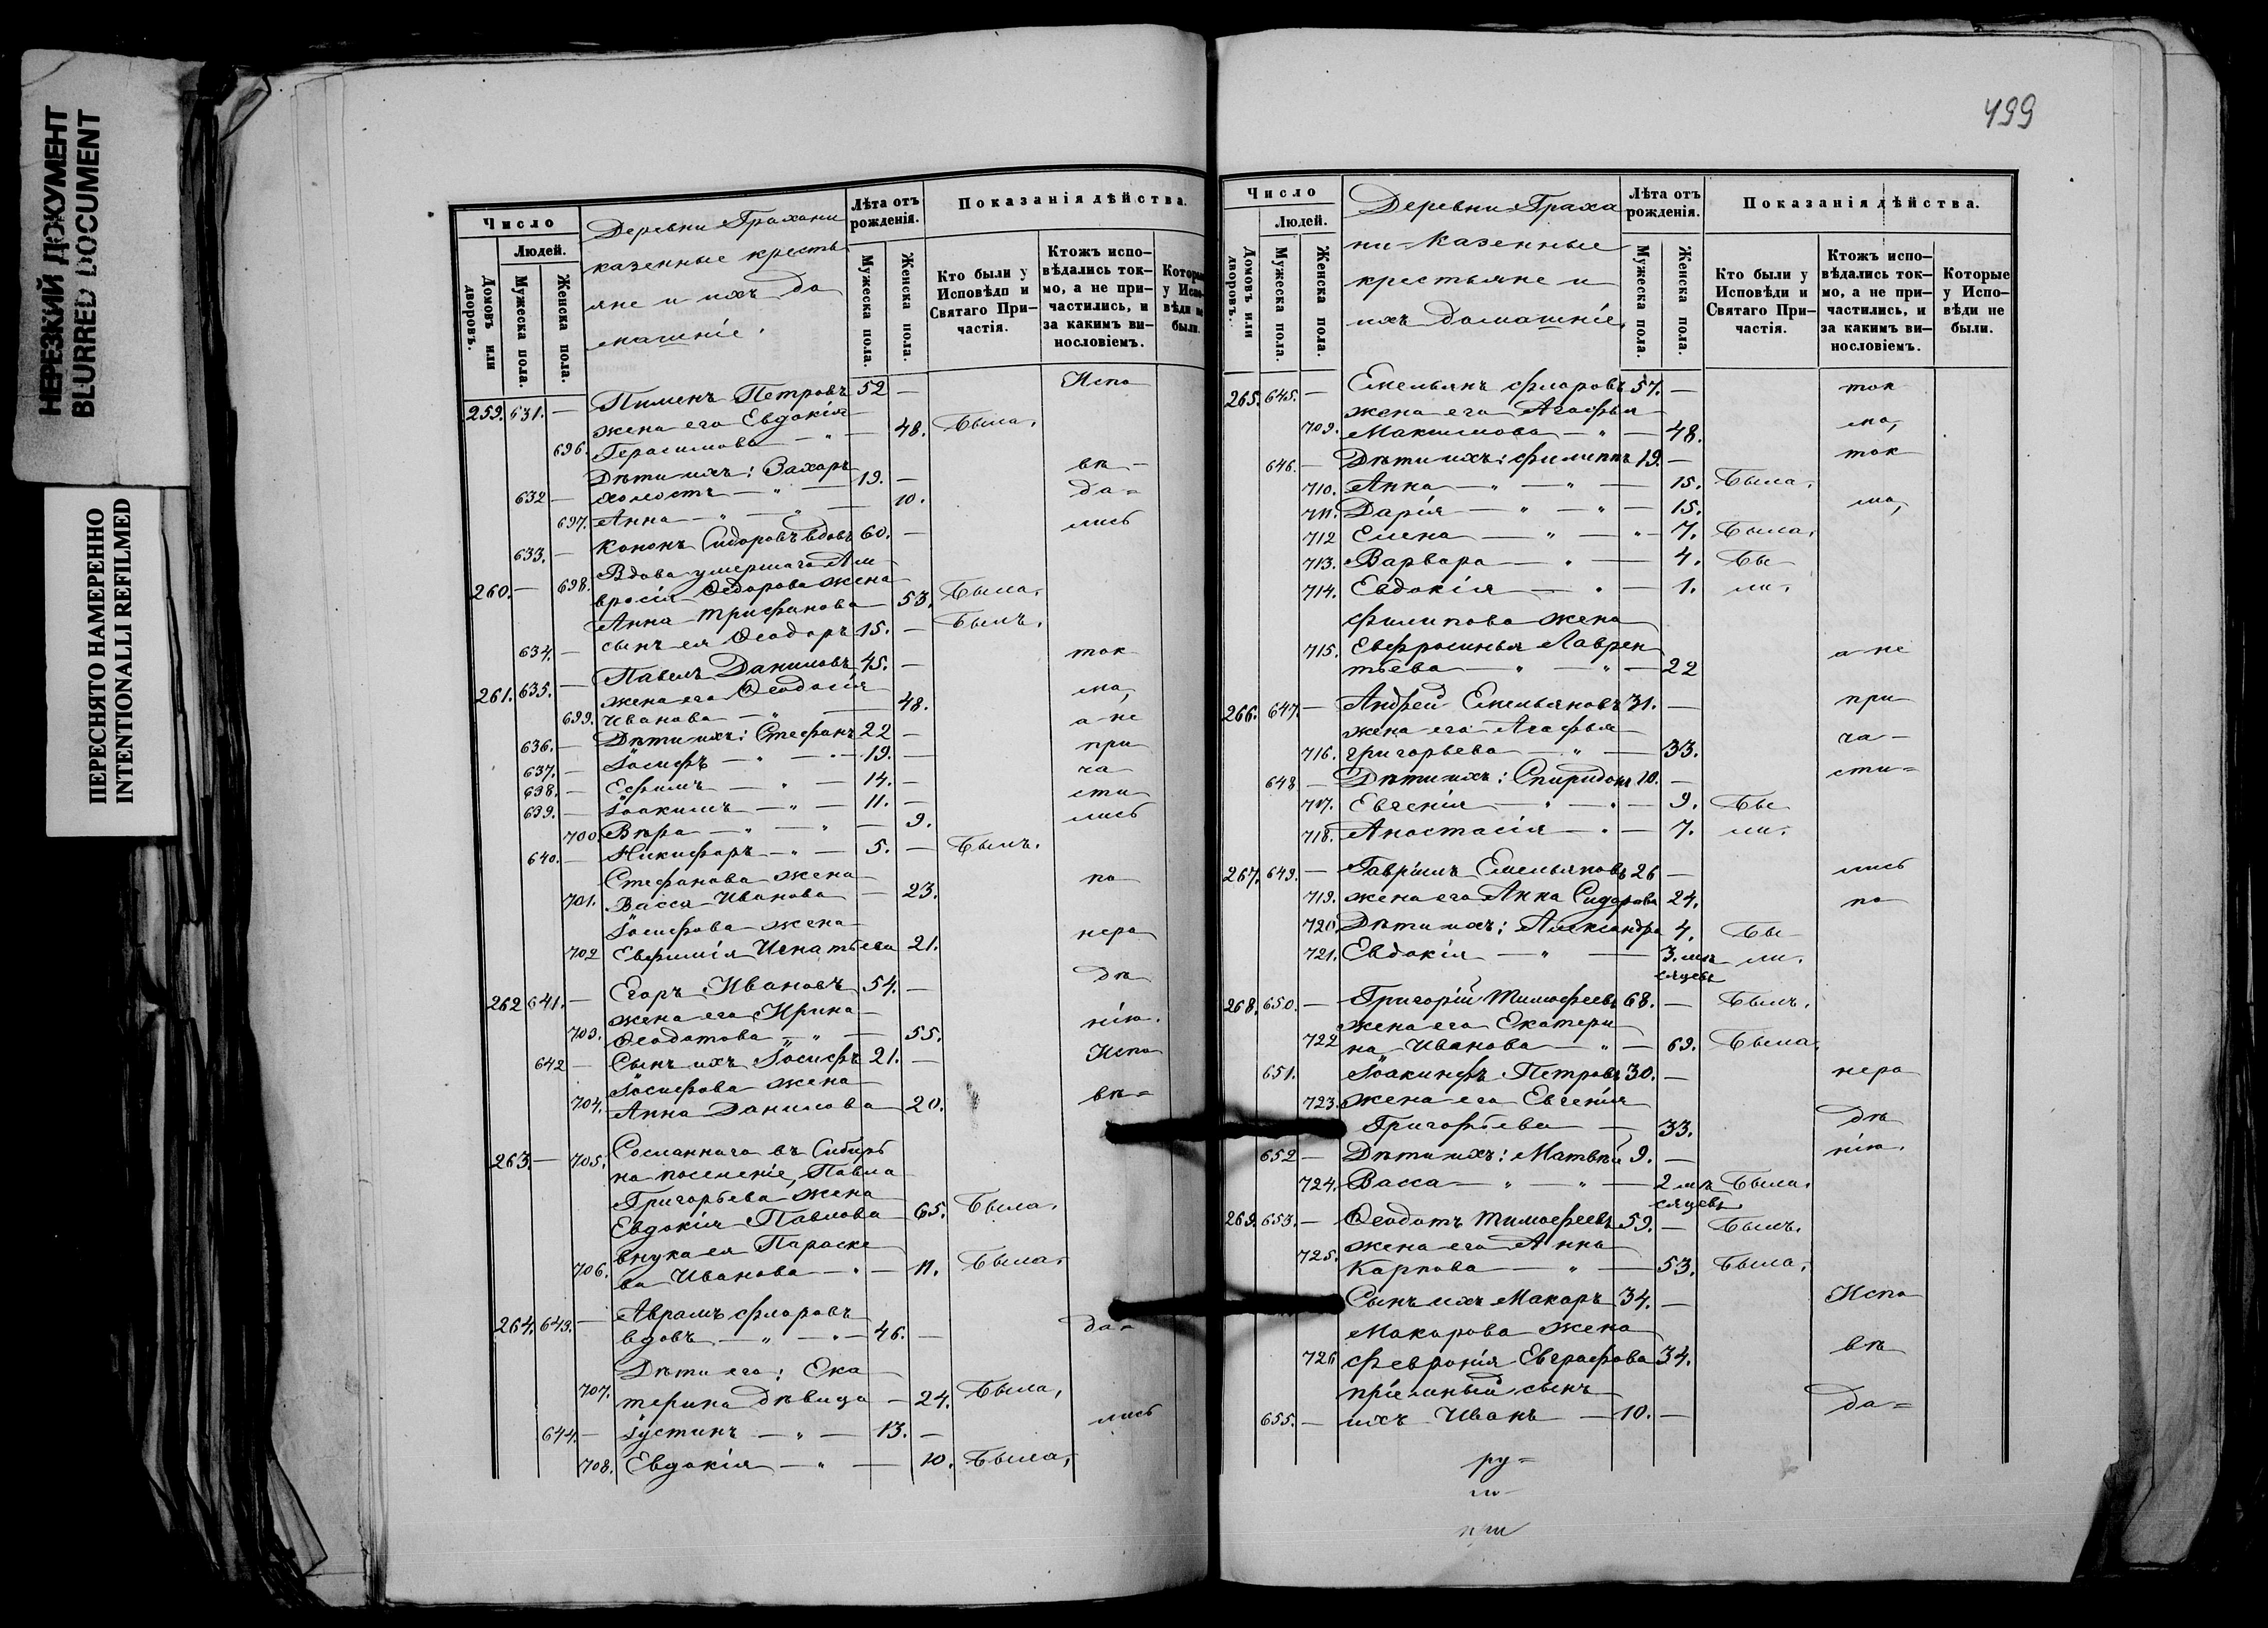 НЕРЕЗКИЙ ДОКУМЕНТ
BLURRED DOCUMENT
ПЕРЕСНЯТО НАМЕРЕННО
INTENTIONALLI REFILMED
Число
Людей.
Домовъ или дворовъ.
Мужеска пола.
Женска пола.
Деревни Грахани
казенные кресть
яне и ихъ до
машніе.
Лѣта отъ рожденія.
Мужеска пола.
Женска пола.
Показанія дѣйства.
Кто были у Исповѣди и Святаго При-частія.
Ктожъ испо-вѣдались ток-мо, а не при-частились, и за какимъ ви-нословіемъ.
Которые у Испо-вѣди не были.
259. 631. — Пименъ Петровъ 52 — Испо
жена его Евдокія
696. Герасимова — " — 48. Была.
Дѣти ихъ: Захаръ вѣ-
632 — холостъ — " — 19. — да=
697. Анна — " — " — 10. лись
633. — Кононъ Сидоровъ вдовъ 60. —
Вдова умершаго Ам
260. — 698. вросія Ѳедорова жена
Анна Трифонова — 53. Была.
634. — сынъ ея Ѳеодоръ 15. — Былъ.
261. 635. — Павелъ Даниловъ 45. — ток
жена его Ѳеодосія
699. Иванова — " — 48. мо,
636. — Дѣти ихъ: Стефанъ 22 — а не
637. — Іосифъ — " — " — 19. — при
638. — Ефимъ — " — 14. — ча
639. — Іоакимъ — " — 11. — сти
700. Вѣра — " — " — 9. лись
640. — Никифоръ — " — 5. — Былъ.
Стефанова жена
701. Васса Иванова — 23. по
Іосифова жена
702 Евфимія Игнатьева 21. нера
262 641. — Егоръ Ивановъ 54. — дѣ
жена его Ирина
703. Ѳеодотова — " — 55. нію.
642 — Сынъ ихъ Іосифъ 21. — Испо
Іосифова жена
704. Анна Данилова 20. вѣ=
263. — 705. Сосланнаго въ Сибирь
на поселеніе, Павла
Григорьева жена
Евдокія Павлова 65. Была.
внука ея Параске
706. ва Иванова — " — 11. Была.
264. 643. — Аврамъ Флоровъ
вдовъ — " — " — 46. — да=
Дѣти его: Ека
707. терина дѣвица — 24. Была,
644. — Іустинъ — " — 13. — лись
708. Евдокія — " — 10. Была,
499
Число
Людей.
Домовъ или дворовъ.
Мужеска пола.
Женска пола.
Деревни Граха
ни казенные
крестьяне и
ихъ домашніе.
Лѣта отъ рожденія.
Мужеска пола.
Женска пола.
Показанія дѣйства.
Кто были у Исповѣди и Святаго При-частія.
Ктожъ испо-вѣдались ток-мо, а не при-частились, и за какимъ ви-нословіемъ.
Которые у Испо-вѣди не были.
265. 645. — Емельянъ Флоровъ 57. — ток
жена его Агафья
709. Максимова — " — 48. мо,
646. — Дѣти ихъ: Филиппъ 19. — ток
710. Анна — " — " — 15. Была.
711. Дарія — " — " — 15. мо,
712 Елена — " — " — 7. Была.
713. Варвара — " — 4. Бы
714. Евдокія — " — 1. ли.
Филипова жена
715. Евфросинья Лаврен
тьева — " — " — 22 а не
266. 647. — Андрей Емельяновъ 31. — при
жена его Агафья
716. Григорьева — " — 33. ча-
648 — Дѣти ихъ: Спиридонъ 10. — сти=
717. Евгенія — " — " — 9. Бы
718. Анастасія — " — 7. ли.
267. 649. — Гавріилъ Емельяновъ 26 — лись
719. жена его Анна Сидорова 24. по
720. Дѣти ихъ: Александра 4. Бы
721. Евдокія — " — 3. мѣ ли.
сяцевъ
268. 650. — Григорій Тимофеевъ 68. — Былъ.
жена его Екатери
722 на Иванова — " — 69. Была.
651. Іоакинфъ Петровъ 30. — нера
723. жена его Евгенія
Григорьева — 33. дѣ
652 — Дѣти ихъ: Матвѣй 9. — нію.
724. Васса — " — " — 2 мѣ Была.
сяцевъ
269. 653. — Ѳеодотъ Тимофеевъ 59. — Былъ.
725. жена его Анна
Карпова — " — 53. Была.
Сынъ ихъ Макаръ 34. — Испо
Макарова жена
726 Февронія Евграфова 34. вѣ
пріемный сынъ
655. — ихъ Иванъ — 10. — да=
ру=